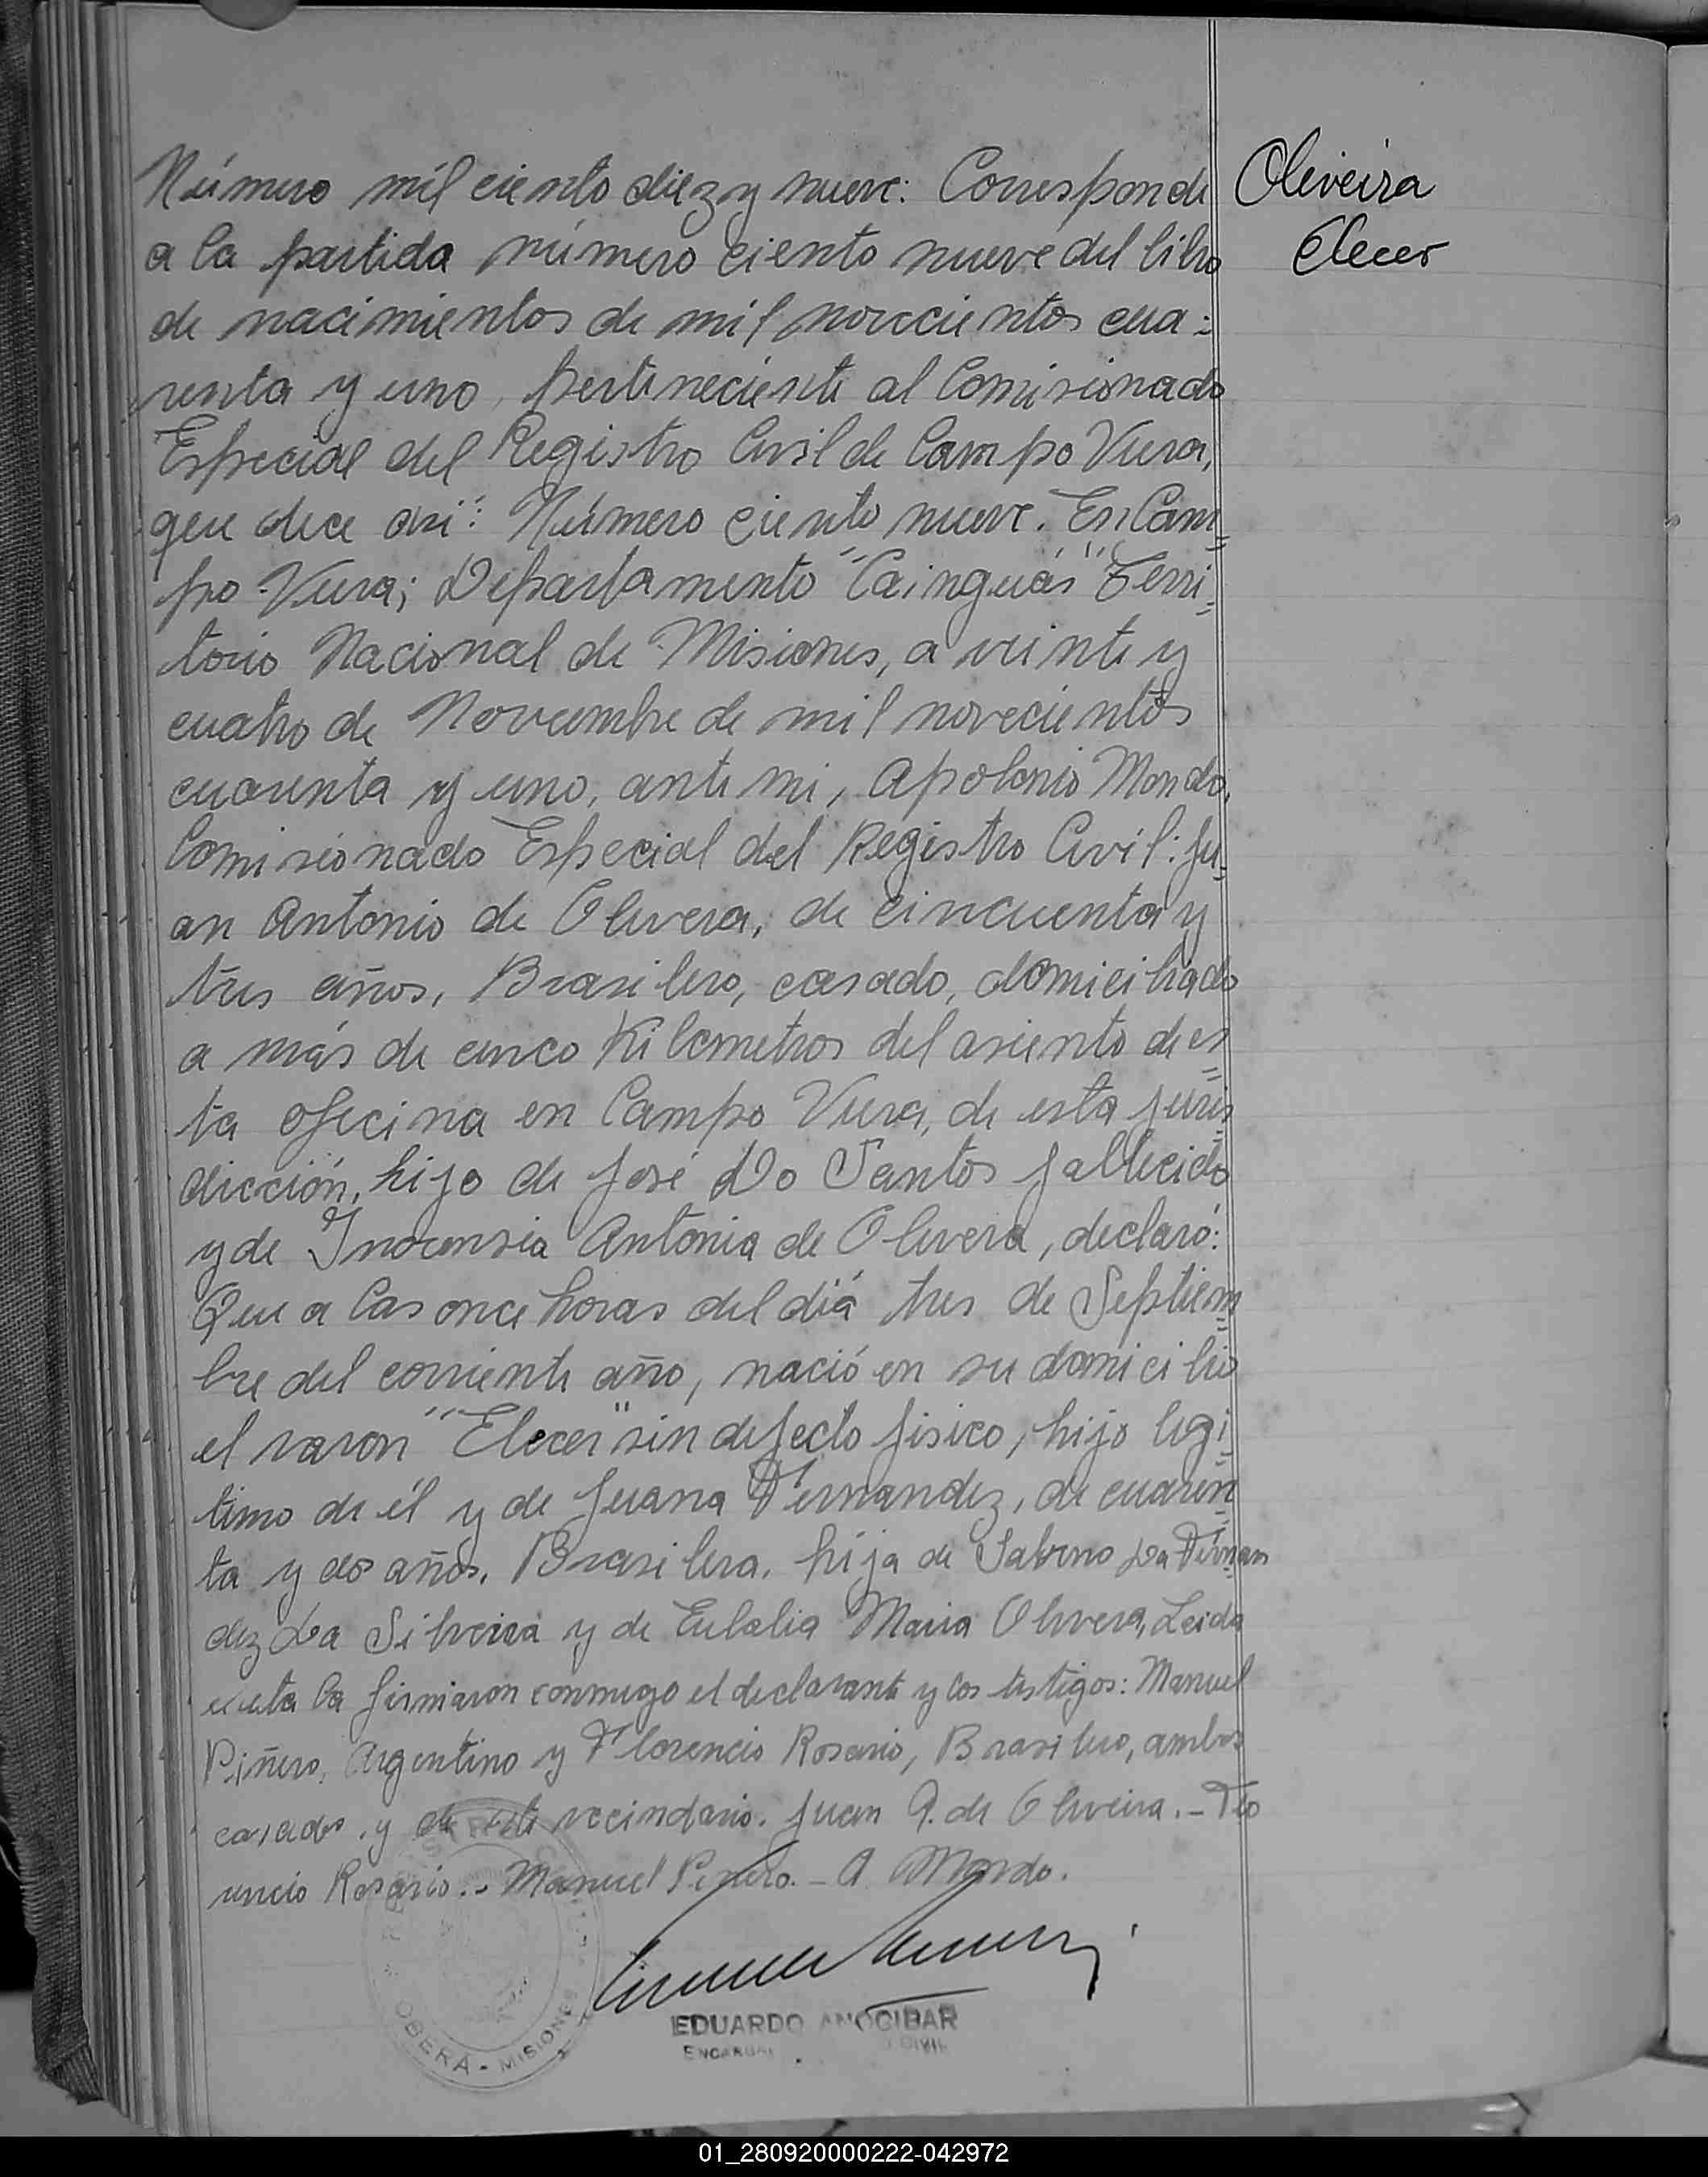 Número mil ciento diez y nueve: Corresponde
a la partida número ciento nueve del libro
de nacimientos de mil novecientos cua=
renta y uno, perteneciente al Comisionado
Especial del Registro Civil de Campo Viera,
que dice asi: Número ciento nueve. En Cam=
po Viera; Departamento "Cainguás" Terri=
torio Nacional de Misiones, a veinte y
cuatro de Noviembre de mil novecientos
cuarenta y uno, ante mi, Apolonio Mondo,
Comisionado Especial del Registro Civil: Ju=
an Antonio de Olivera, de cincuenta y
tres años, Brasilero, casado, domiciliado
a más de cinco Kilometros del asiento de es=
ta oficina en Campo Viera, de esta juris=
dicción, hijo de José Do Santos fallecido
y de Inocensia Antonia de Olivera, declaró:
Que a las once horas del diá tres de Septiem=
bre del corriente año, nació en su domicilio
el varon "Elecer" sin defecto fisico, hijo legi=
timo de él y de Juana Fernandez, de cuaren=
ta y dos años, Brasilera, hija de Sabino Da Fernan=
dez Da Silveira y de Eulalia Maria Olivera, Leida
el acta la firmaron conmigo el declarante y los testigos: Manuel
Piñero, Argentino y Florencio Rosario, Brasilero, ambos
casados, y de este vecindario. Juan A. de Oliveira. - Flo
rencio Rosario. - Manuel Piñero. - A. Mondo.
Oliveira
Elecer
OBERÁ - MISIONES
EDUARDO ANOCIBAR
01_280920000222-042972